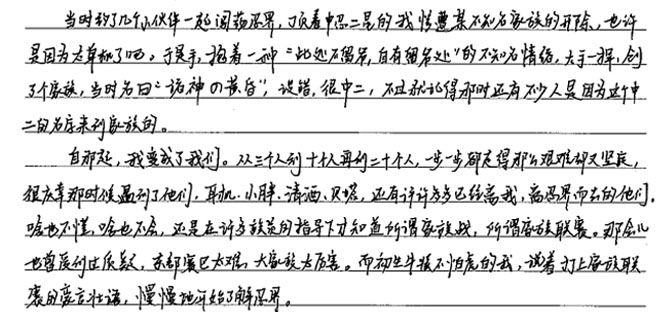 当时约了几个小伙伴一起闯荡忍界，顶着中忍二星的我惨遭某不知名家族的开除，也许
是因为太单机了吧。于是乎，抱着一种“此处不留爷，自有留爷处”的不知名情绪，大手一挥，创
了个家族，当时名曰“诸神の黄昏”，没错，很中二，不过我记得那时还有不少人是因为这个中
二的名字来到家族的。
自那起，我变成了我们。从三个人到十个人再到二十个人，一步一步都走得那么艰难却又坚定，
很庆幸那时候遇到了他们，耳机、小胖、清酒、贝塔，还有许许多多已经离我，离忍界而去的他们。
啥也不懂，啥也不会，还是在许多族员的指导下才知道所谓家族战，所谓家族联赛。那会儿
也曾质问过质疑，东部赛区太难，大家族太厉害。而初生牛犊不怕虎的我，说着打上家族联
赛的豪言壮语，慢慢地开始了解忍界。